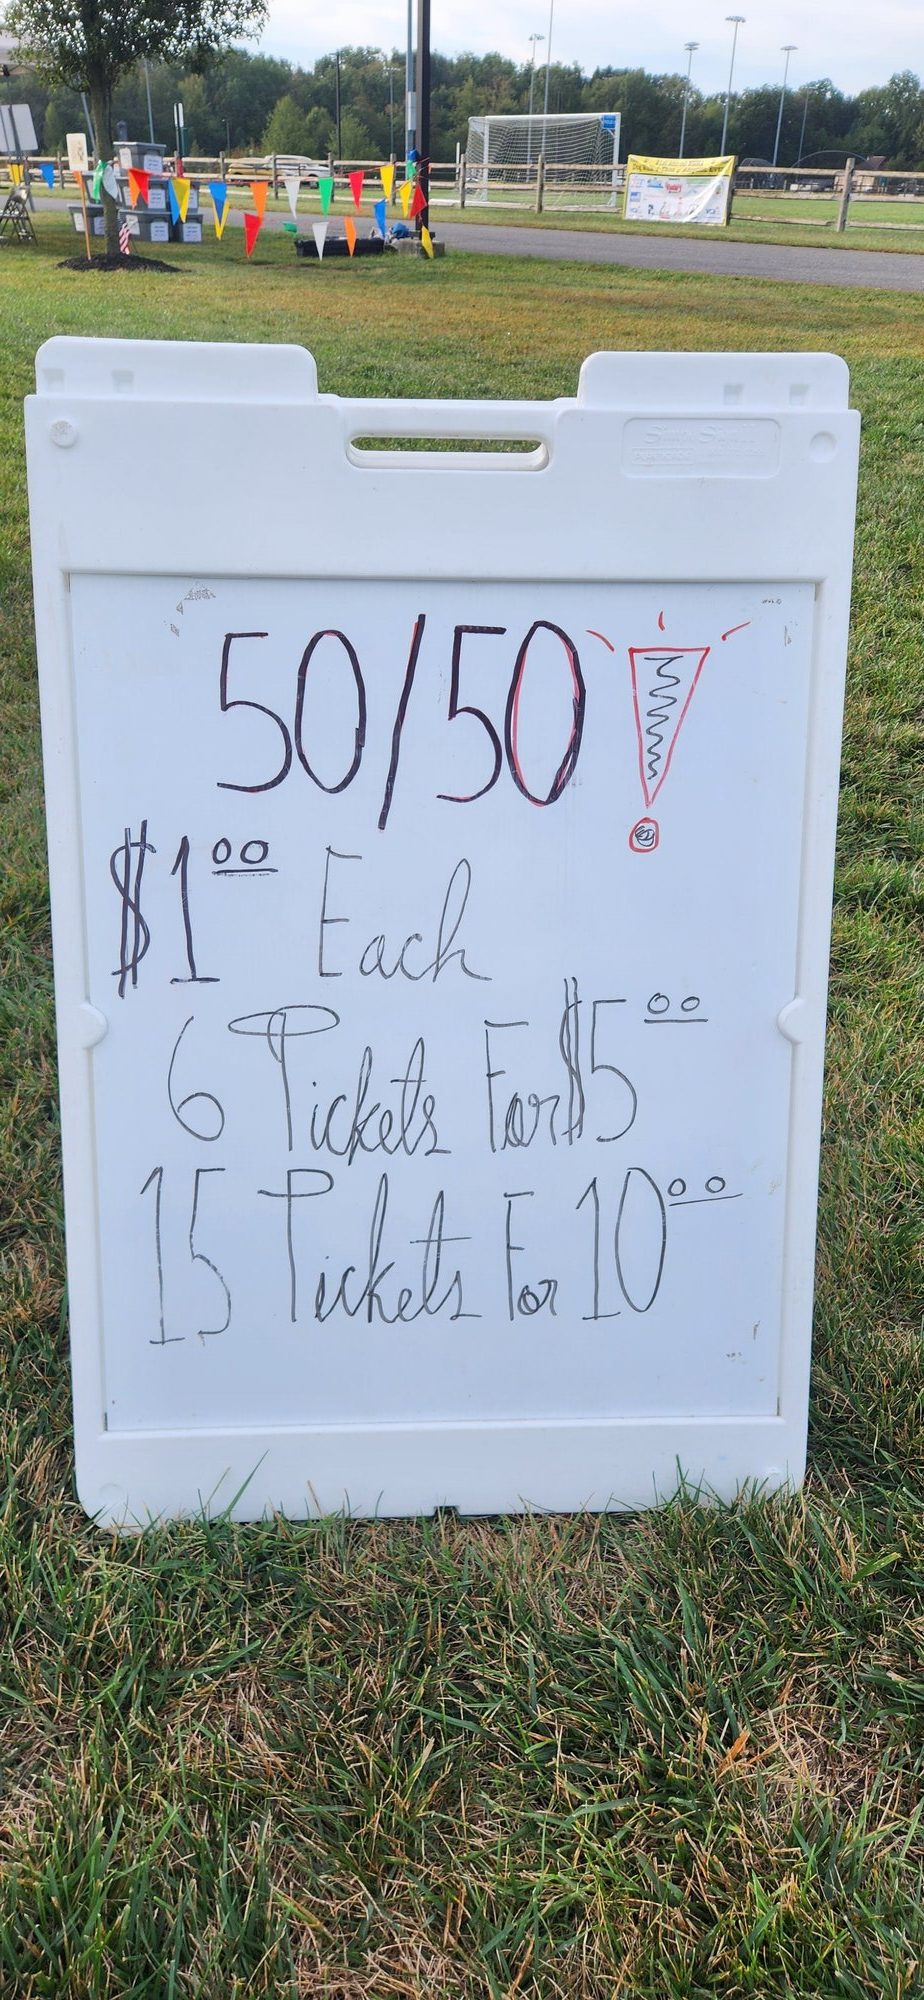 50/50!
$1.00 Each
6 Tickets For $5.00
15 Tickets For 10.00